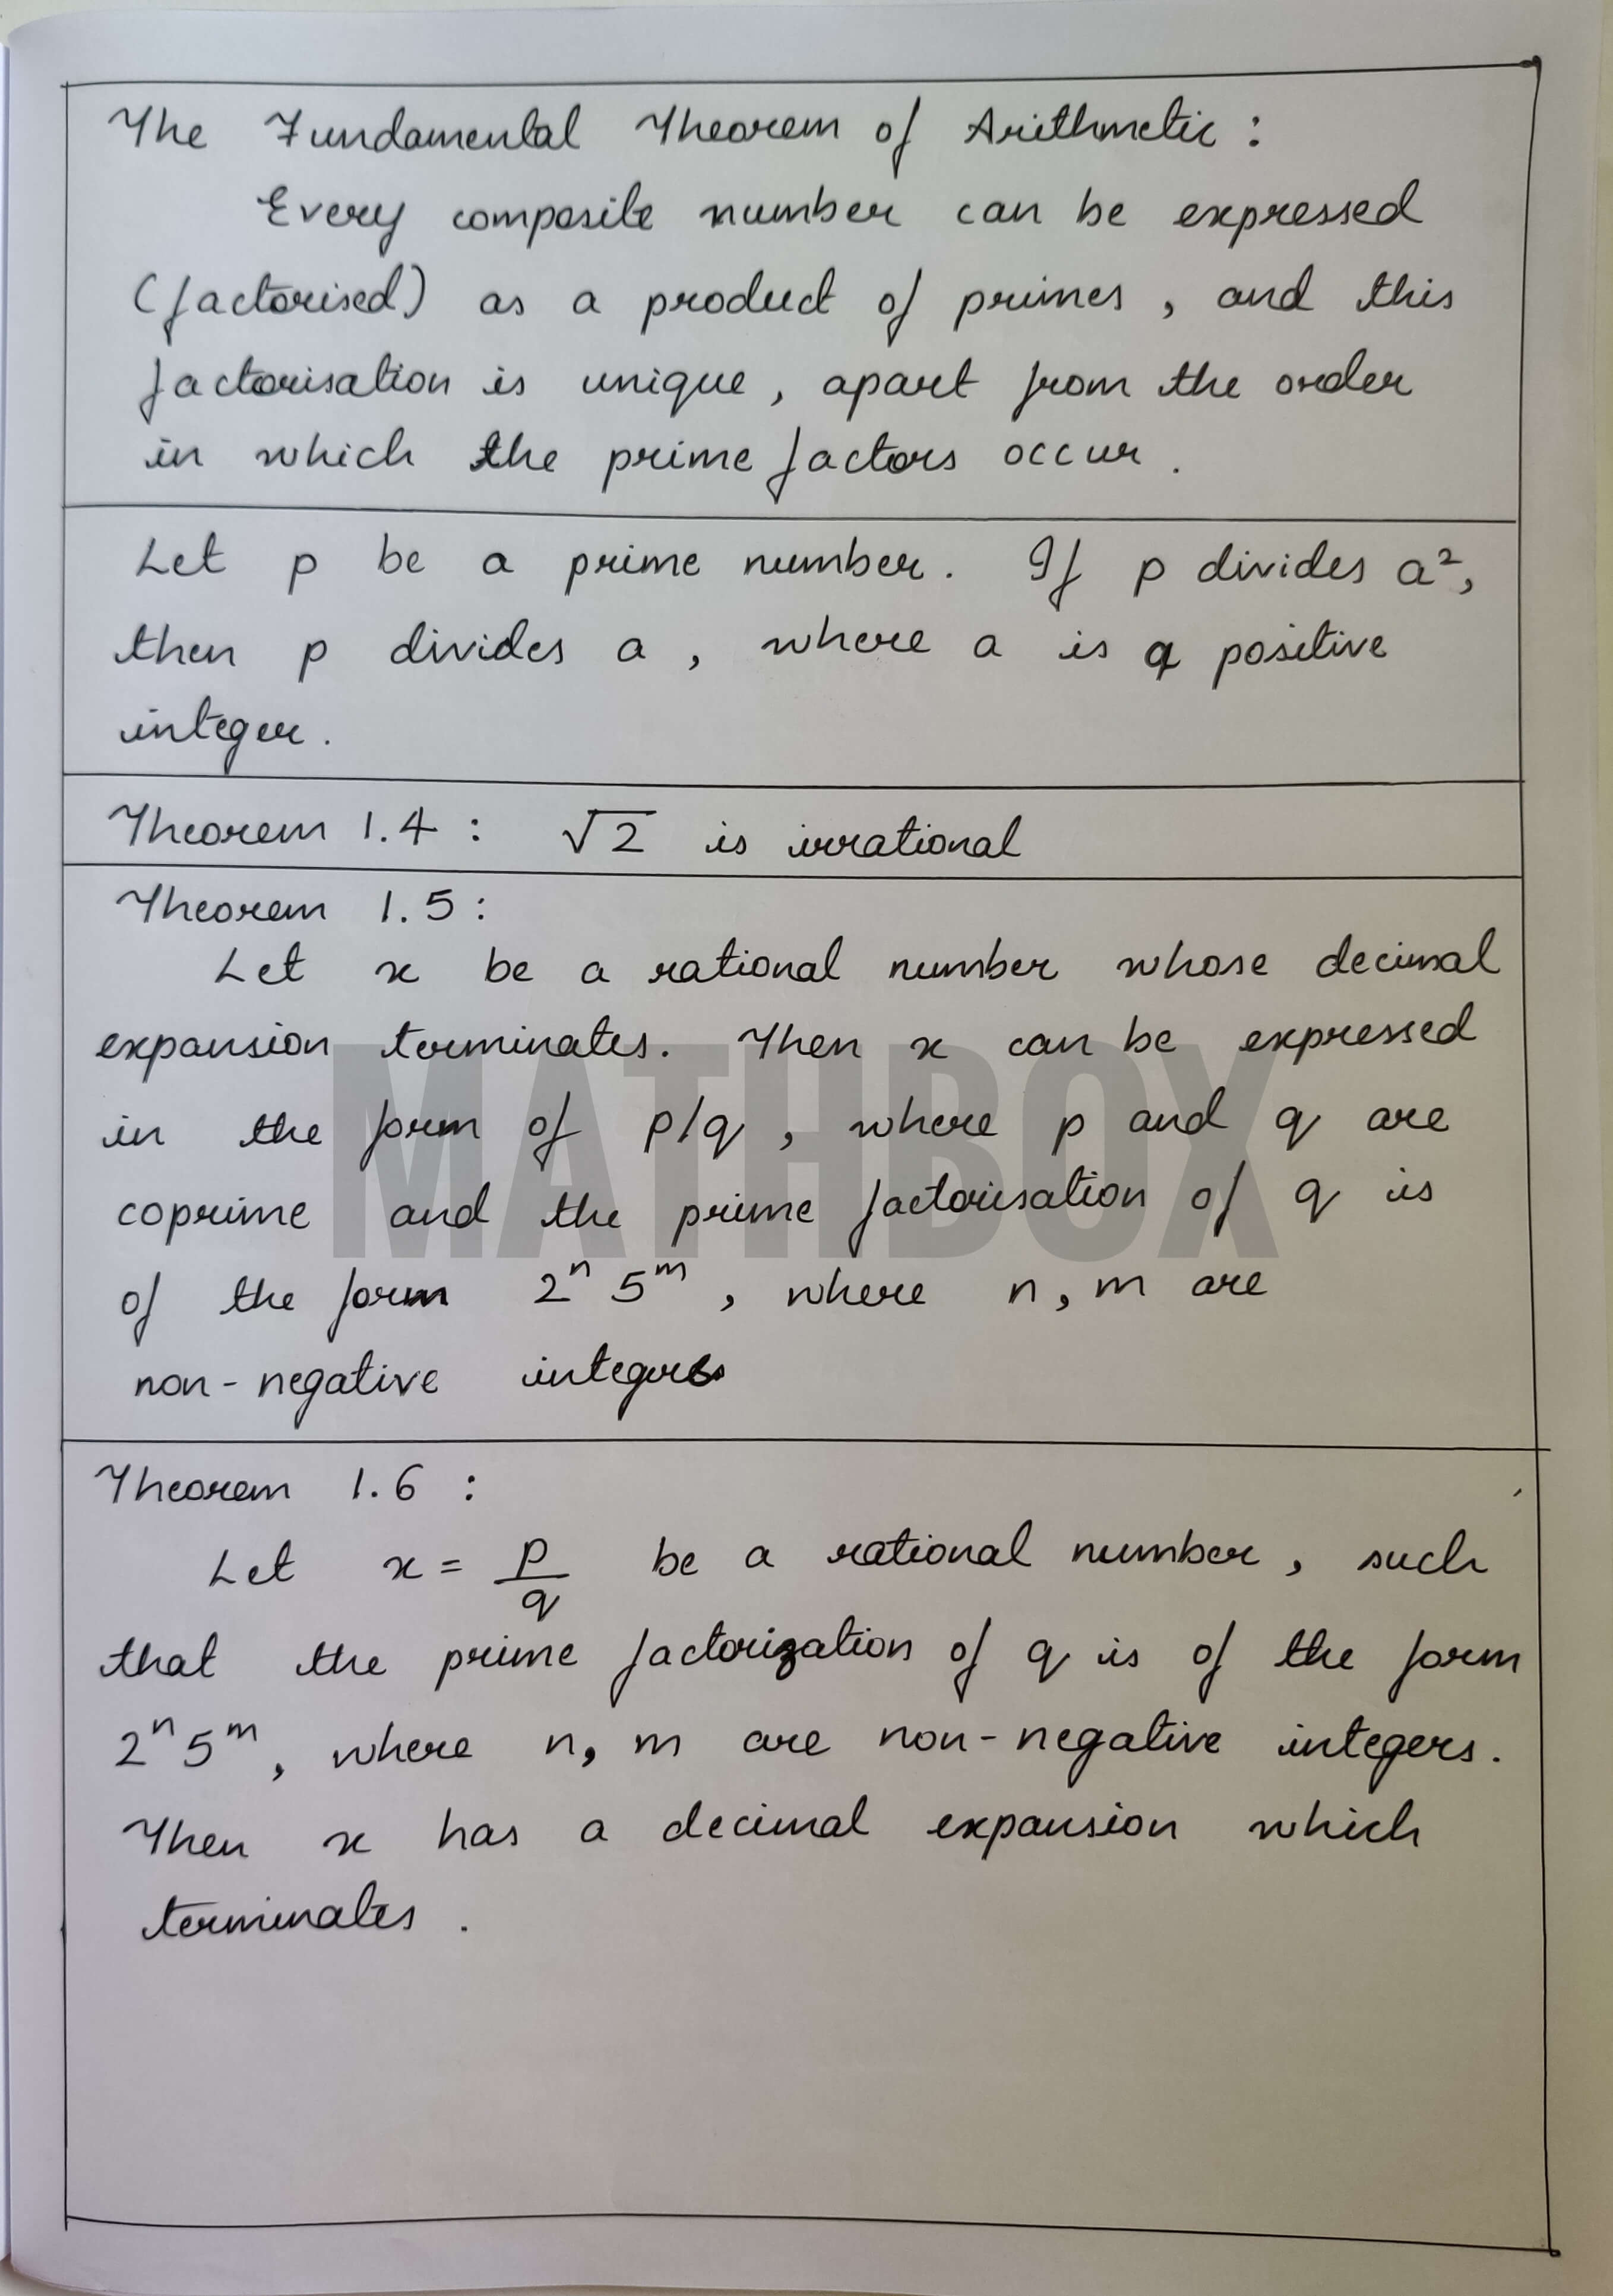 The Fundamental Theorem of Arithmetic :
Every composite number can be expressed
(factorised) as a product of primes , and this
factorisation is unique, apart from the order
in which the prime factors occur .
Let p be a prime number. If p divides a²,
then p divides a , where a is a positive
integer.
Theorem 1.4 : √2 is irrational
Theorem 1.5 :
Let x be a rational number whose decimal
expansion terminates. Then x can be expressed
in the form of p/q , where p and q are
MATHBOX
coprime and the prime factorisation of q is
of the form 2ⁿ 5ᵐ , where n, m are
non-negative integers
Theorem 1.6 :
Let x = p/q be a rational number, such
that the prime factorization of q is of the form
2ⁿ 5ᵐ, where n, m are non-negative integers.
Then x has a decimal expansion which
terminates .